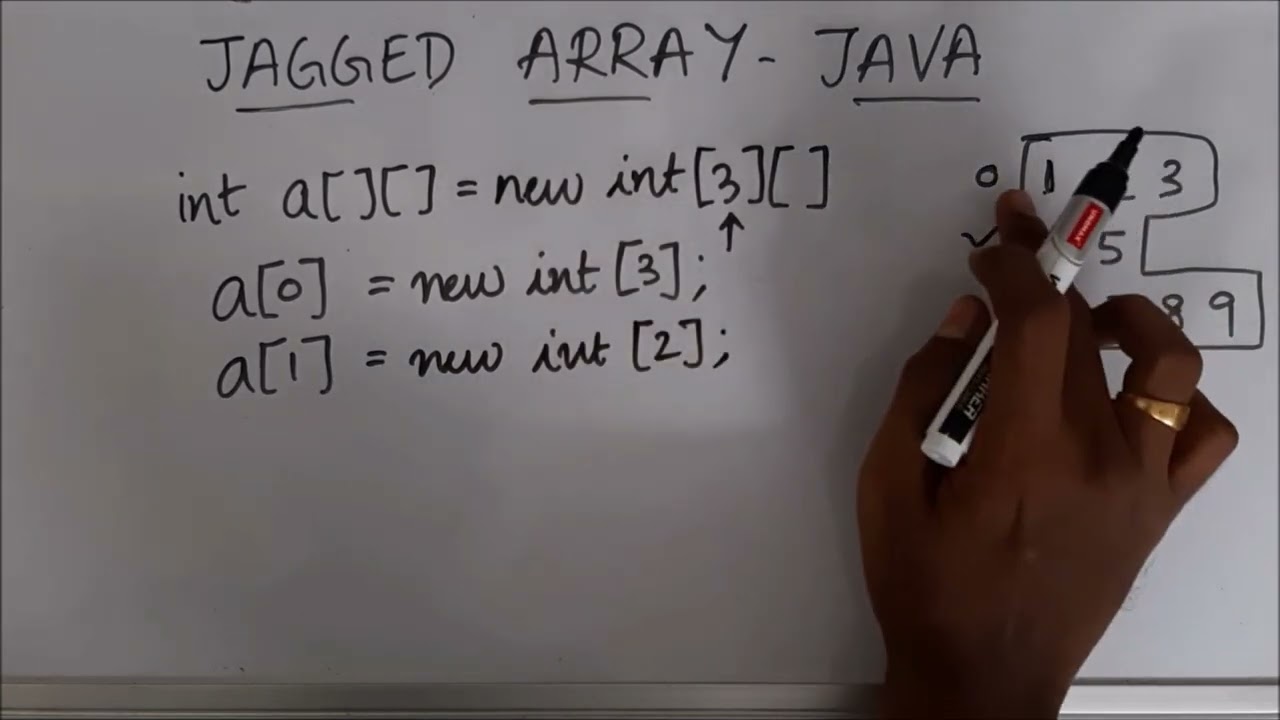 JAGGED ARRAY - JAVA
int a[][] = new int[3][]
a[0] = new int[3];
a[1] = new int[2];
0 1 3
5
8 9